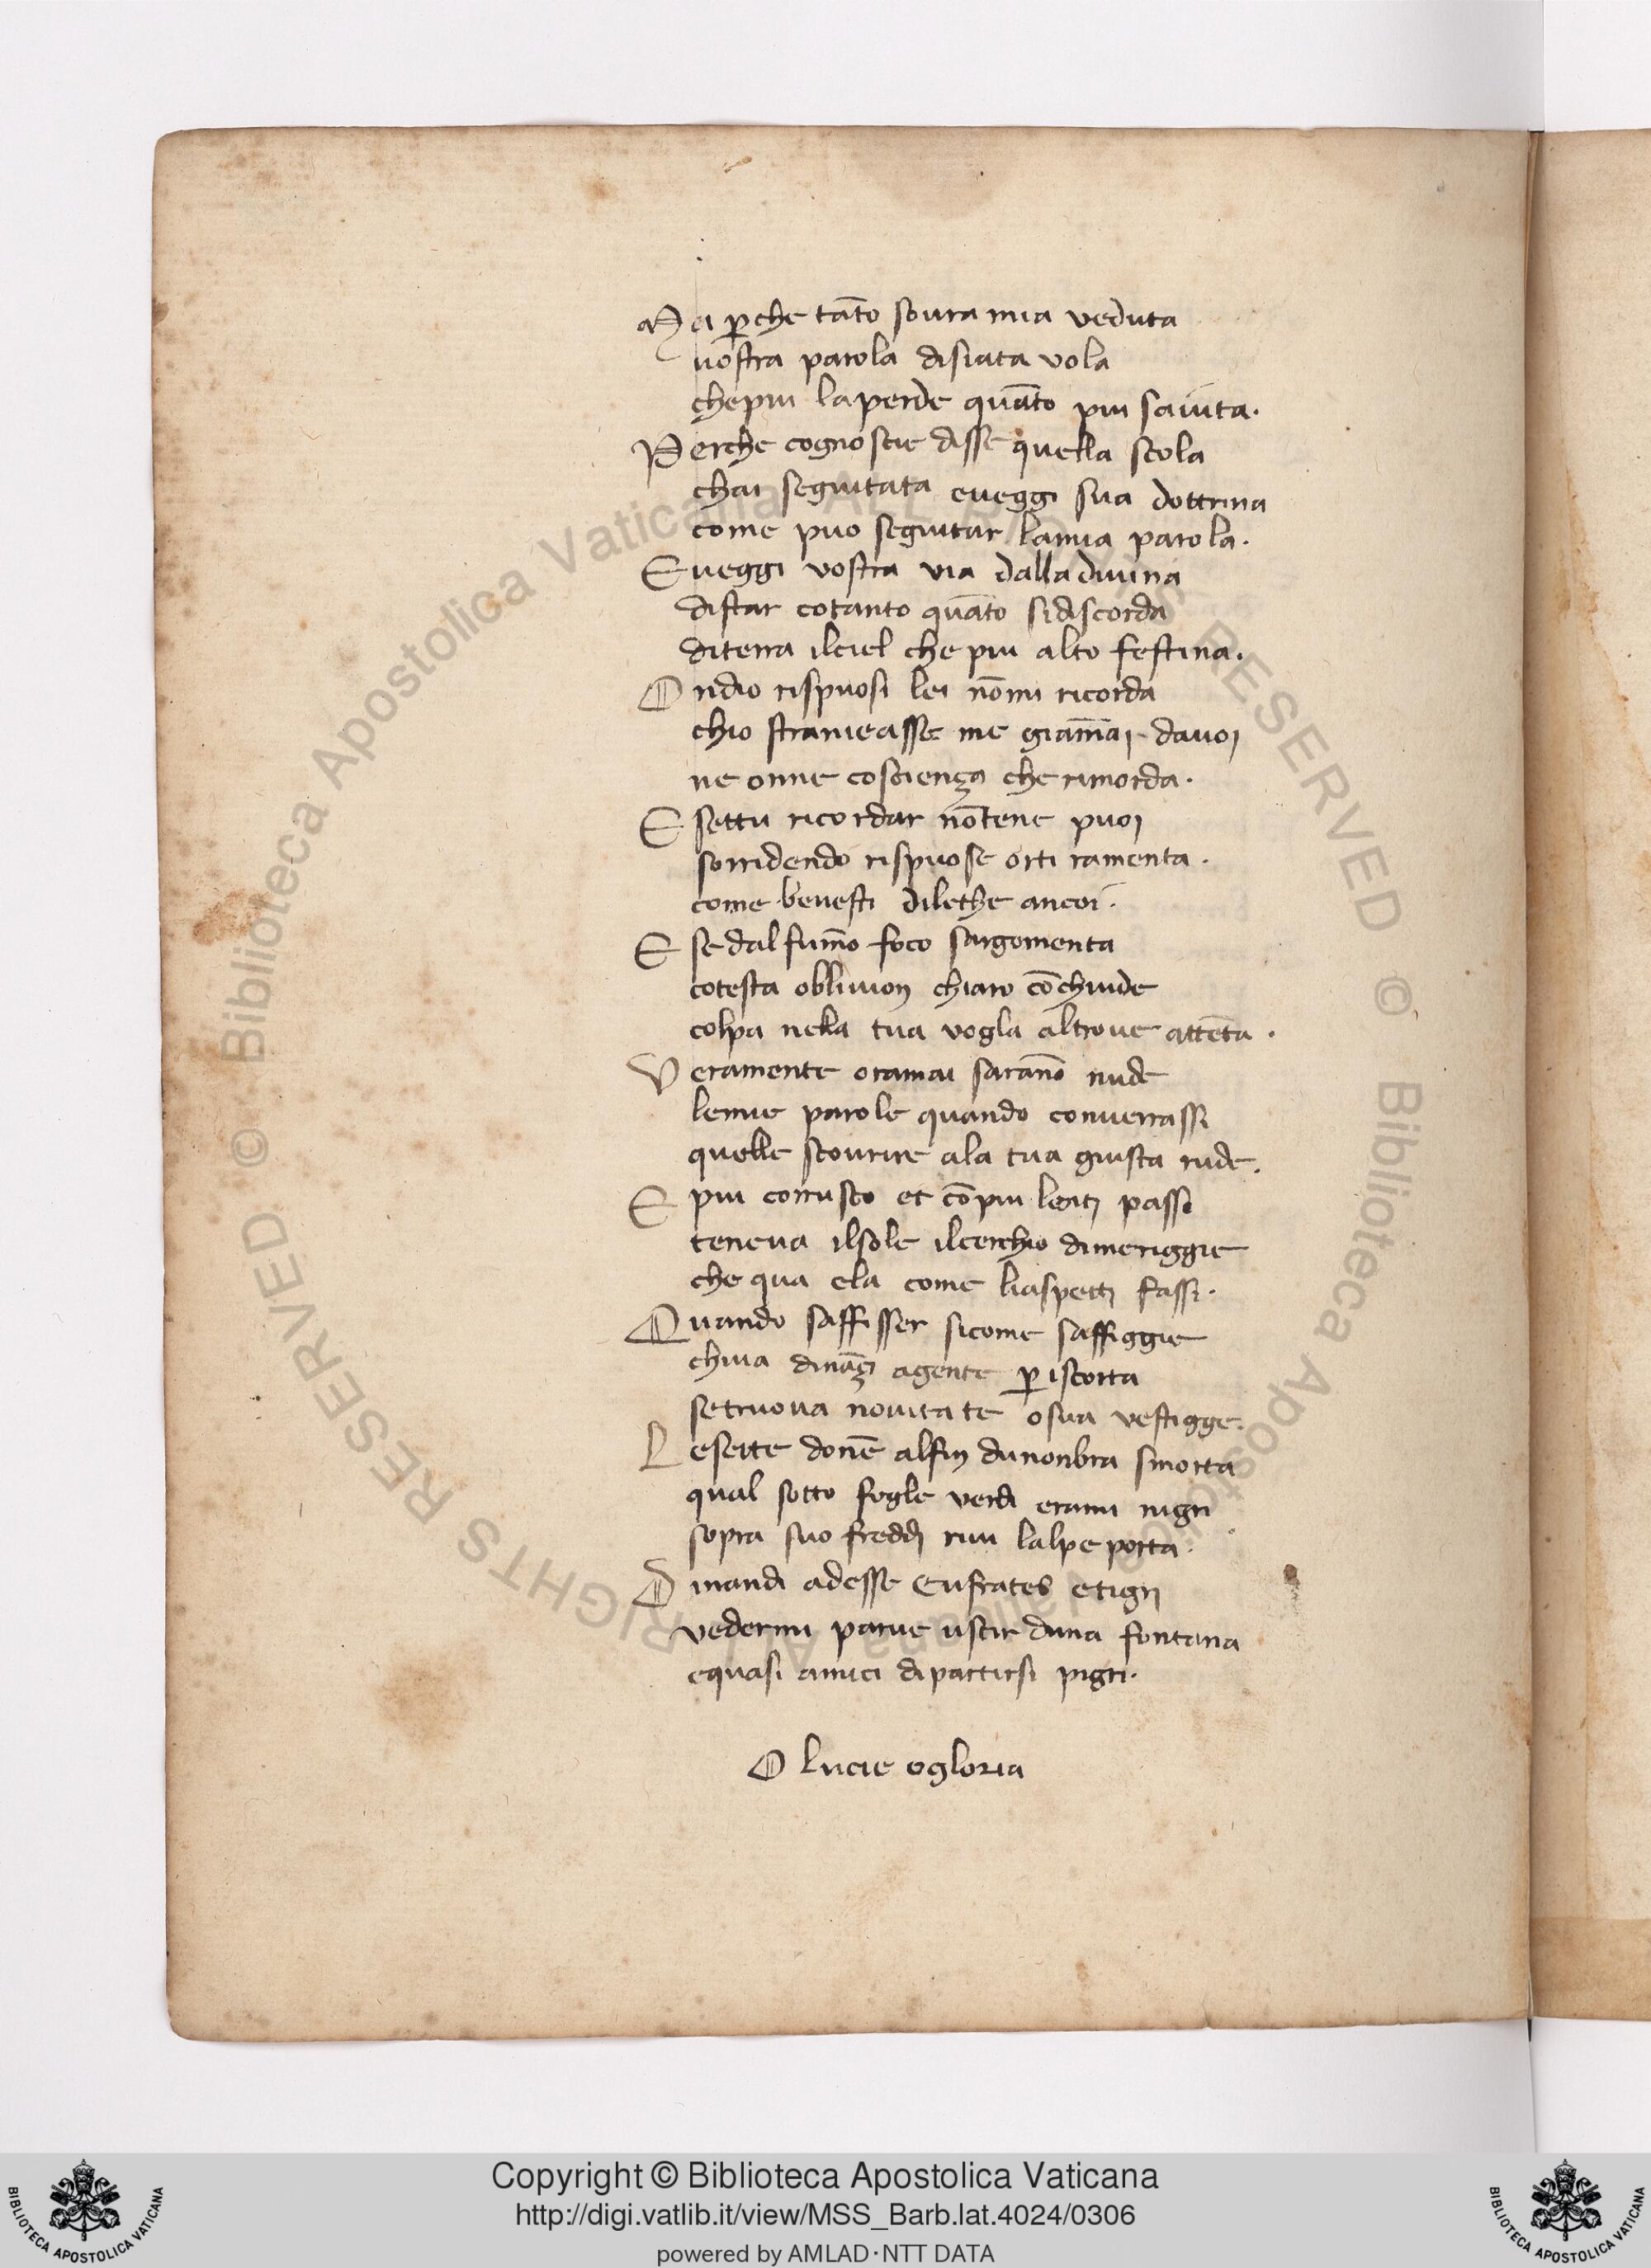 Ma p̱che tāto soura mia veduta
uostra parola disiata vola
chepiu laperde quāto piu saiuta.
Perche cognoscie disse quella scola
chai seguitata eueggi sua dottrina
come puo seguitar lamia parola.
Eueggi vostra via dalladiuina
distar cotanto quāto sidiscorda
diterra ilciel che piu alto festina.
Ondio rispuosi lei nōmi ricorda
chio stranieasse me giāmāi dauoi
ne onne coscienza che rimorda.
E settu ricordar nōtene puoi
sorridendo rispuose orti ramenta.
come beuesti dilethe ancoi.
E sedalfūmo foco sargomenta
cotesta obliuion chiaro cōchiude
colpa nella tua vogla altroue attēta.
Veramente oramai sarāno nude
lemie parole quando conuerrassi
quelle scourire ala tua giusta rude.
E piu corrusco et cōpiu lenti passi
teneua ilsole ilcerchio dimeriggie
che qua ela come liaspetti fassi.
Quando saffisser sicome saffiggie
chiua dināzi agente p̱ iscorta
setruoua nouitate osua vestigge.
Lesette donē alfin dunonbra smorta
qual sotto fogle verdi erami nigri
sopra suo freddi riui lalpe porta.
Dinandi adesse Eufrates etigri
vedermi parue uscir duna fontana
equasi amici dipartirsi pigri.
O lucie ogloria
Copyright © Biblioteca Apostolica Vaticana
http://digi.vatlib.it/view/MSS_Barb.lat.4024/0306
powered by AMLAD·NTT DATA
BIBLIOTECA APOSTOLICA VATICANA
BIBLIOTECA APOSTOLICA VATICANA
© Biblioteca Apostolica Vaticana ALL RIGHTS RESERVED
© Biblioteca Apostolica Vaticana ALL RIGHTS RESERVED